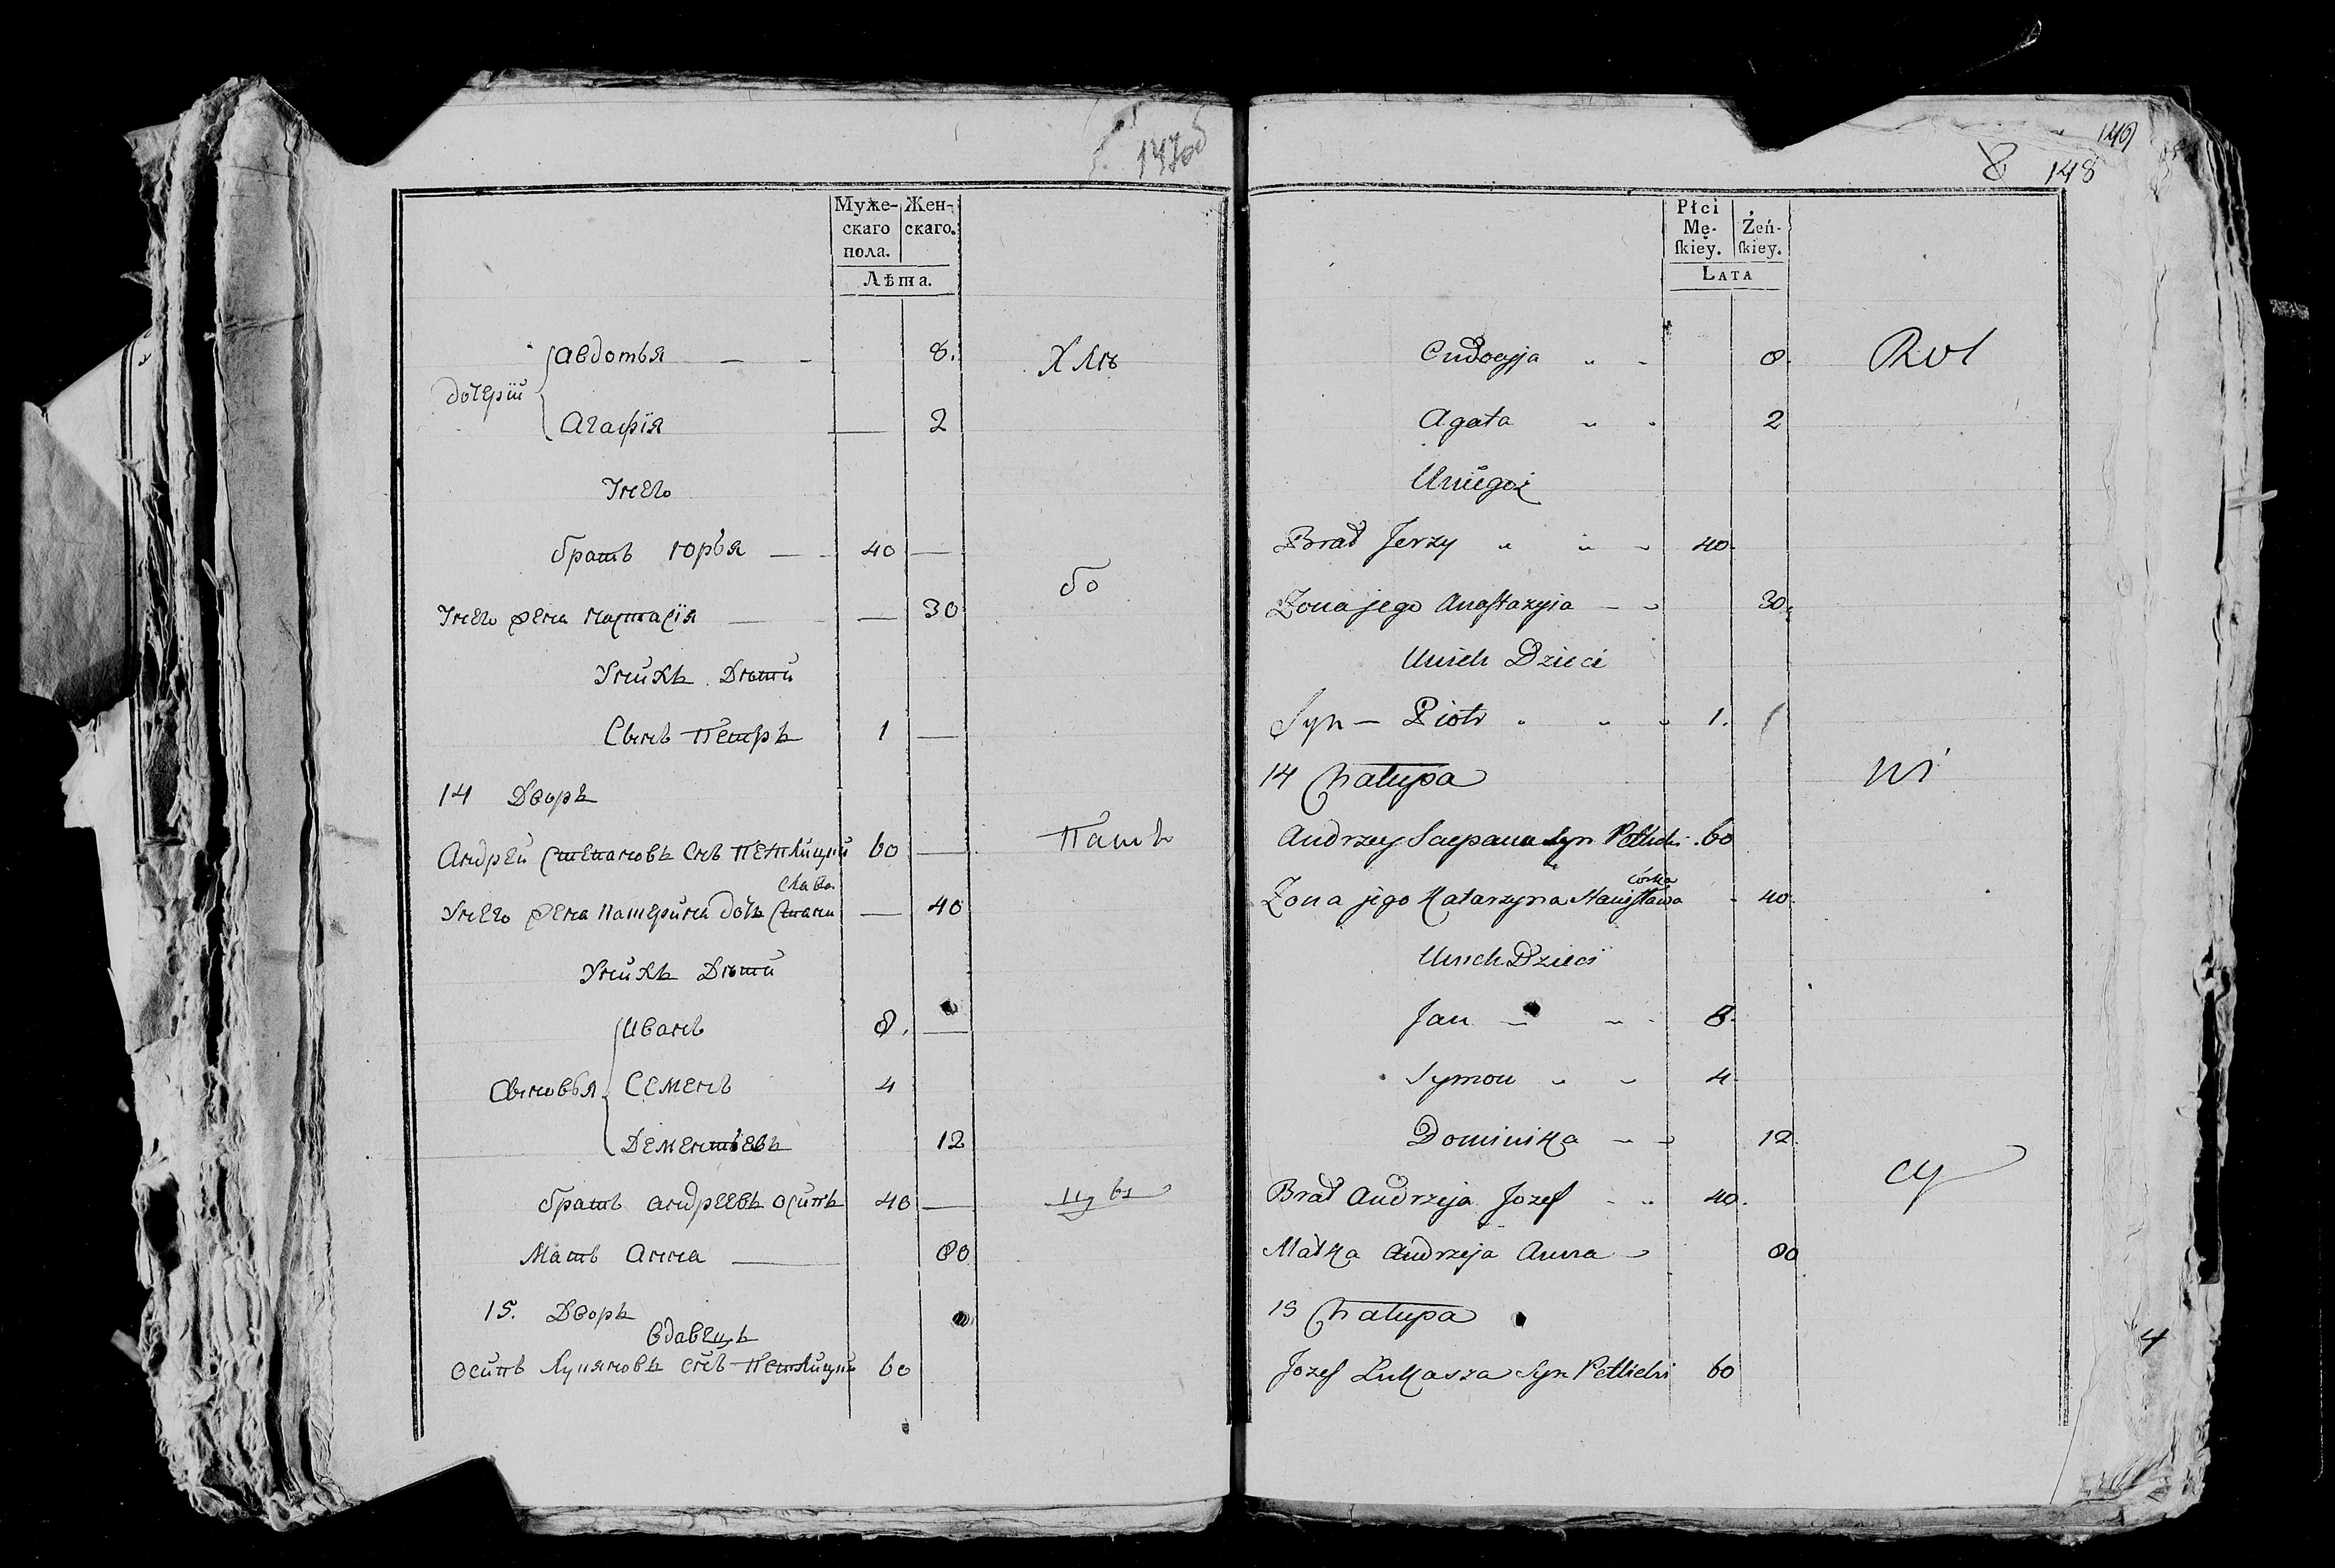 147об
Муже-
скаго
пола.
Жен-
скаго.
Лѣта.
дочерїи
Авдотья 8.
Хлѣ
Агафїя 2
Унего
братъ Юрья 40
бо
Унего жена Настасїя 30
Унихъ Дѣти
Сынъ Петръ 1
14 Дворъ
Андрей Степановъ снъ Петлицкий 60
Пашъ
слава
Унего жена Катерина дочь Стани 40
Унихъ Дѣти
Сыновья
Иванъ 8.
Семенъ 4
Дементьевъ 12
братъ Андреевъ Осипъ 40
цы
Мать Анна 80
15. Дворъ
вдавецъ
Осипъ Лукяновъ снъ Петлицкий 60
149
8 148
Płci
Mę-
ſkiey.
Żeń-
ſkiey.
LATA
Eudocyja 8.
Rol
Agata 2
Uniegoż
Brat Jerzy 40
Żona jego Anaſtazyia 30.
Unich Dzieci
Syn – Piotr 1.
14 Chałupa
ni
Andrzey Szczepana Syn Petlicki 60
córka
Żona jego Katarzyna Staniſława 40
Unich Dzieci
Jan 8.
Symon 4
Dominika 12.
cy
Brat Andrzeja Jozef 40.
Matka Andrzeja Anna 80
15 Chałupa
Jozef Łukasza Syn Petlicki 60
4